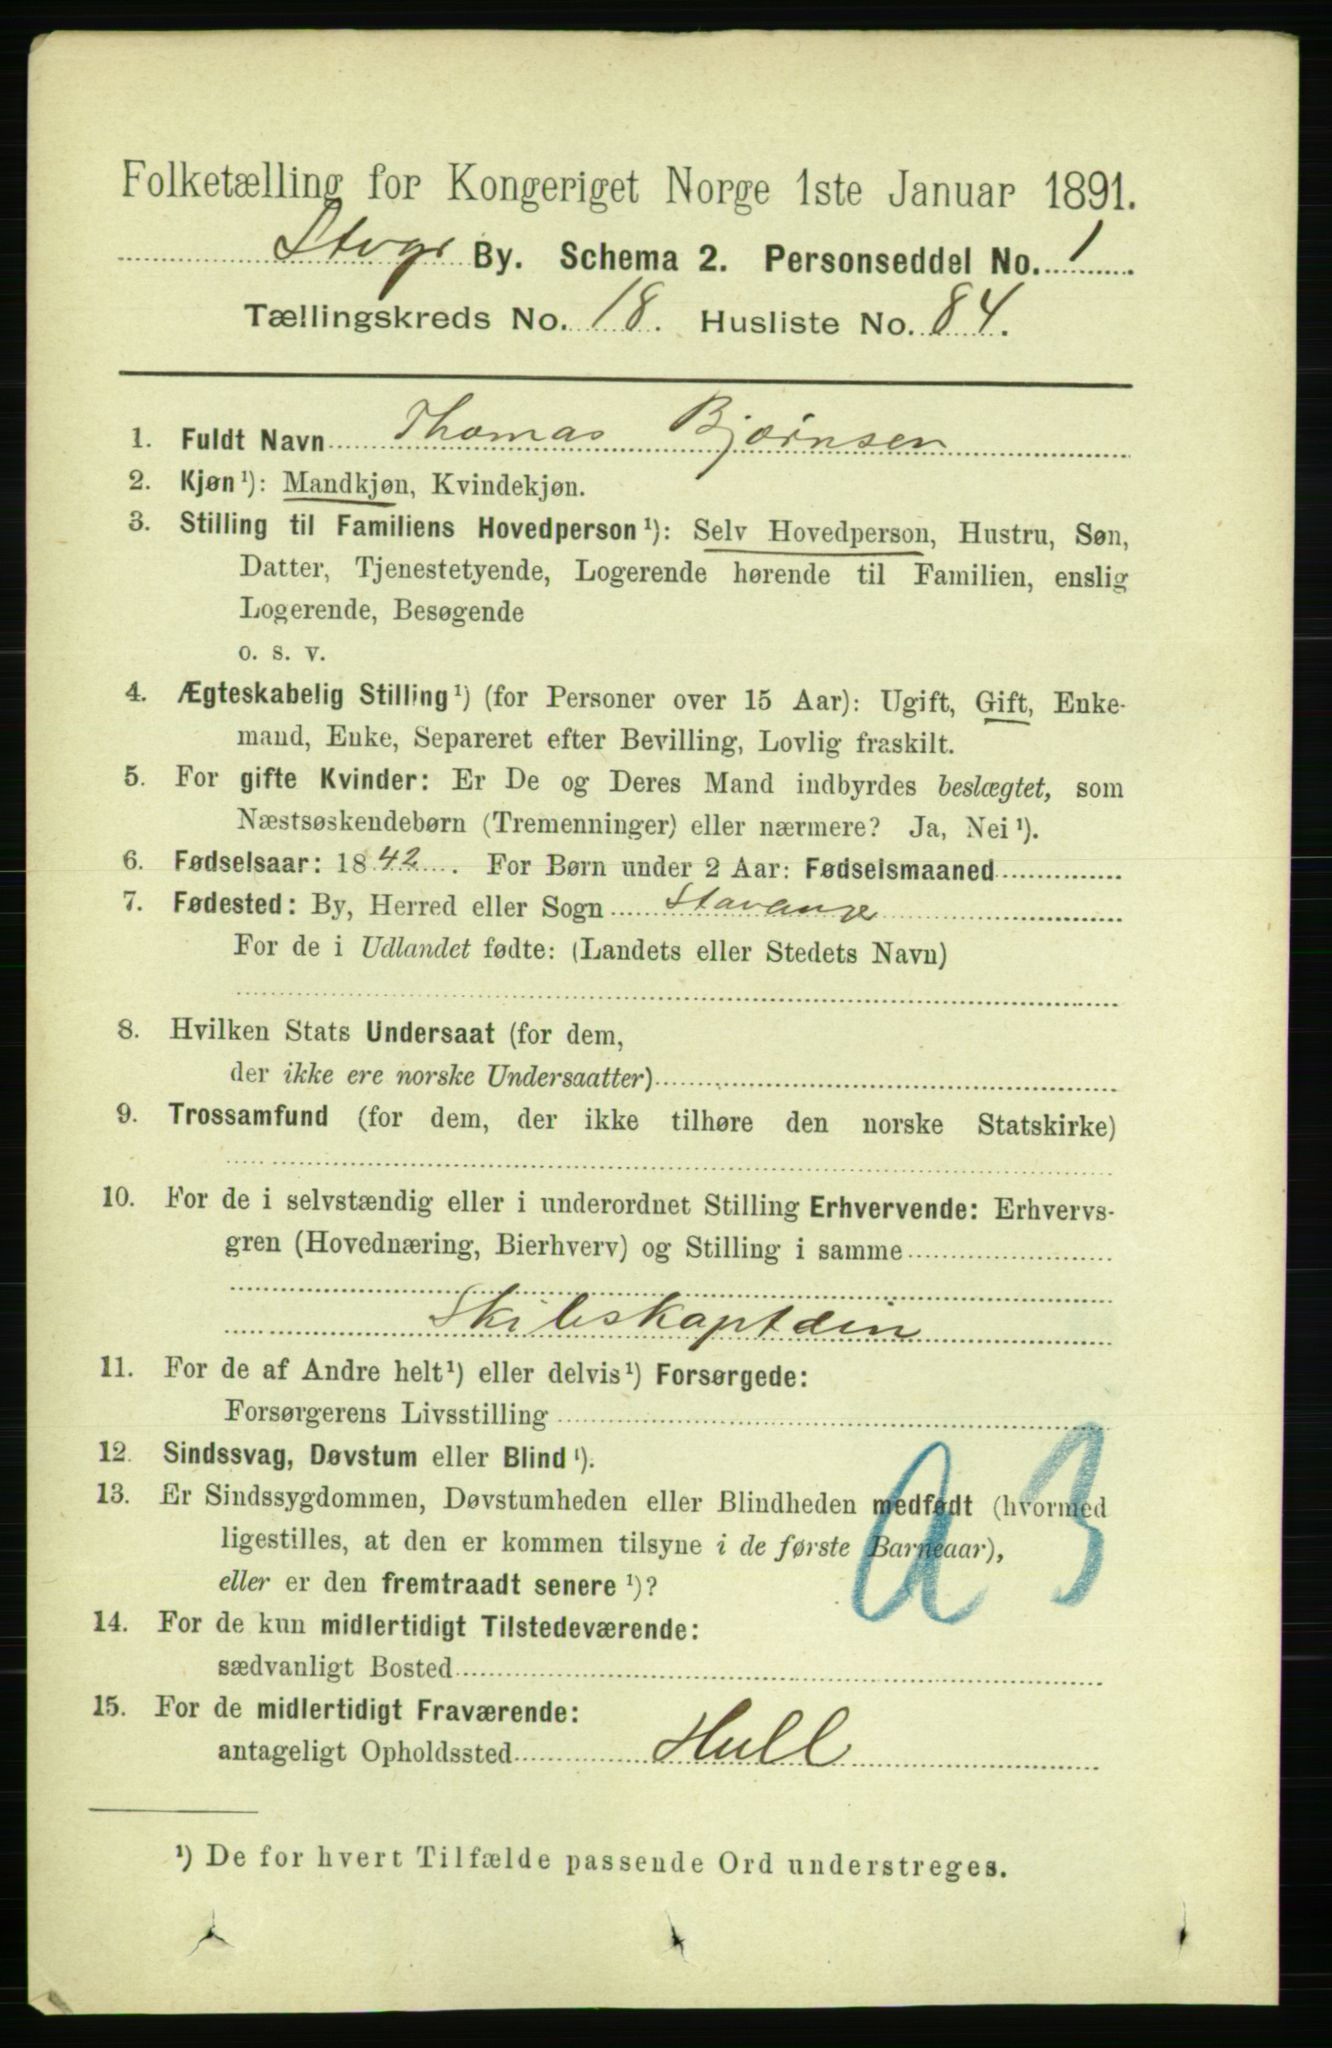 Folketælling for Kongeriget Norge 1ste Januar 1891.
Stvgr By. Schema 2. Personseddel No. 1
Tællingskreds No. 18. Husliste No. 84.
1. Fuldt Navn Thomas Bjørnsen
2. Kjøn¹): Mandkjøn, Kvindekjøn.
3. Stilling til Familiens Hovedperson¹): Selv Hovedperson, Hustru, Søn,
Datter, Tjenestetyende, Logerende hørende til Familien, enslig
Logerende, Besøgende
o. s. v.
4. Ægteskabelig Stilling¹) (for Personer over 15 Aar): Ugift, Gift, Enke-
mand, Enke, Separeret efter Bevilling, Lovlig fraskilt.
5. For gifte Kvinder: Er De og Deres Mand indbyrdes beslægtet, som
Næstsøskendebørn (Tremenninger) eller nærmere? Ja, Nei¹).
6. Fødselsaar: 1842. For Børn under 2 Aar: Fødselsmaaned
7. Fødested: By, Herred eller Sogn Stavanger
For de i Udlandet fødte: (Landets eller Stedets Navn)
8. Hvilken Stats Undersaat (for dem,
der ikke ere norske Undersaatter)
9. Trossamfund (for dem, der ikke tilhøre den norske Statskirke)
10. For de i selvstændig eller i underordnet Stilling Erhvervende: Erhvervs-
gren (Hovednæring, Bierhverv) og Stilling i samme
Skibskaptein
11. For de af Andre helt¹) eller delvis¹) Forsørgede:
Forsørgerens Livsstilling
12. Sindssvag, Døvstum eller Blind¹).
13. Er Sindssygdommen, Døvstumheden eller Blindheden medfødt (hvormed
ligestilles, at den er kommen tilsyne i de første Barneaar),
eller er den fremtraadt senere¹)?
a 3
14. For de kun midlertidigt Tilstedeværende:
sædvanligt Bosted
15. For de midlertidigt Fraværende:
antageligt Opholdssted Hull
¹) De for hvert Tilfælde passende Ord understreges.